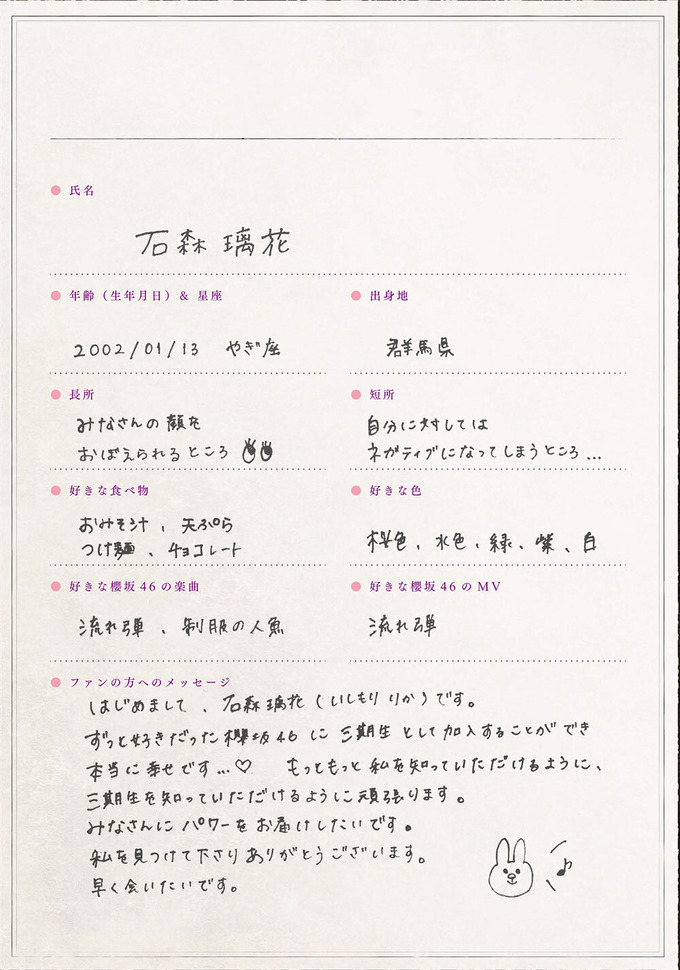 氏名
石森璃花
年齢（生年月日）& 星座
2002/01/13 やぎ座
出身地
群馬県
長所
みなさんの顔を
おぼえられるところ
短所
自分に対しては
ネガティブになってしまうところ...
好きな食べ物
おみそ汁、天ぷら
つけ麺、チョコレート
好きな色
桜色、水色、緑、紫、白
好きな櫻坂46の楽曲
流れ弾、制服の人魚
好きな櫻坂46のMV
流れ弾
ファンの方へのメッセージ
はじめまして、石森璃花（いしもり りか）です。
ずっと好きだった櫻坂46に三期生として加入することができ
本当に幸せです...♡ もっともっと私を知っていただけるように、
三期生を知っていただけるように頑張ります。
みなさんにパワーをお届けしたいです。
私を見つけて下さりありがとうございます。
早く会いたいです。